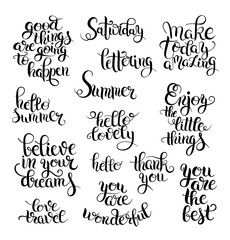 good
things
are going
to
happen
Saturday
lettering
make
today
amazing
Summer
hello
Summer
hello
lovely
Enjoy
the little
things
believe
in your
dreams
hello
thank
you
you
are
the
best
love
travel
you
are
wonderful